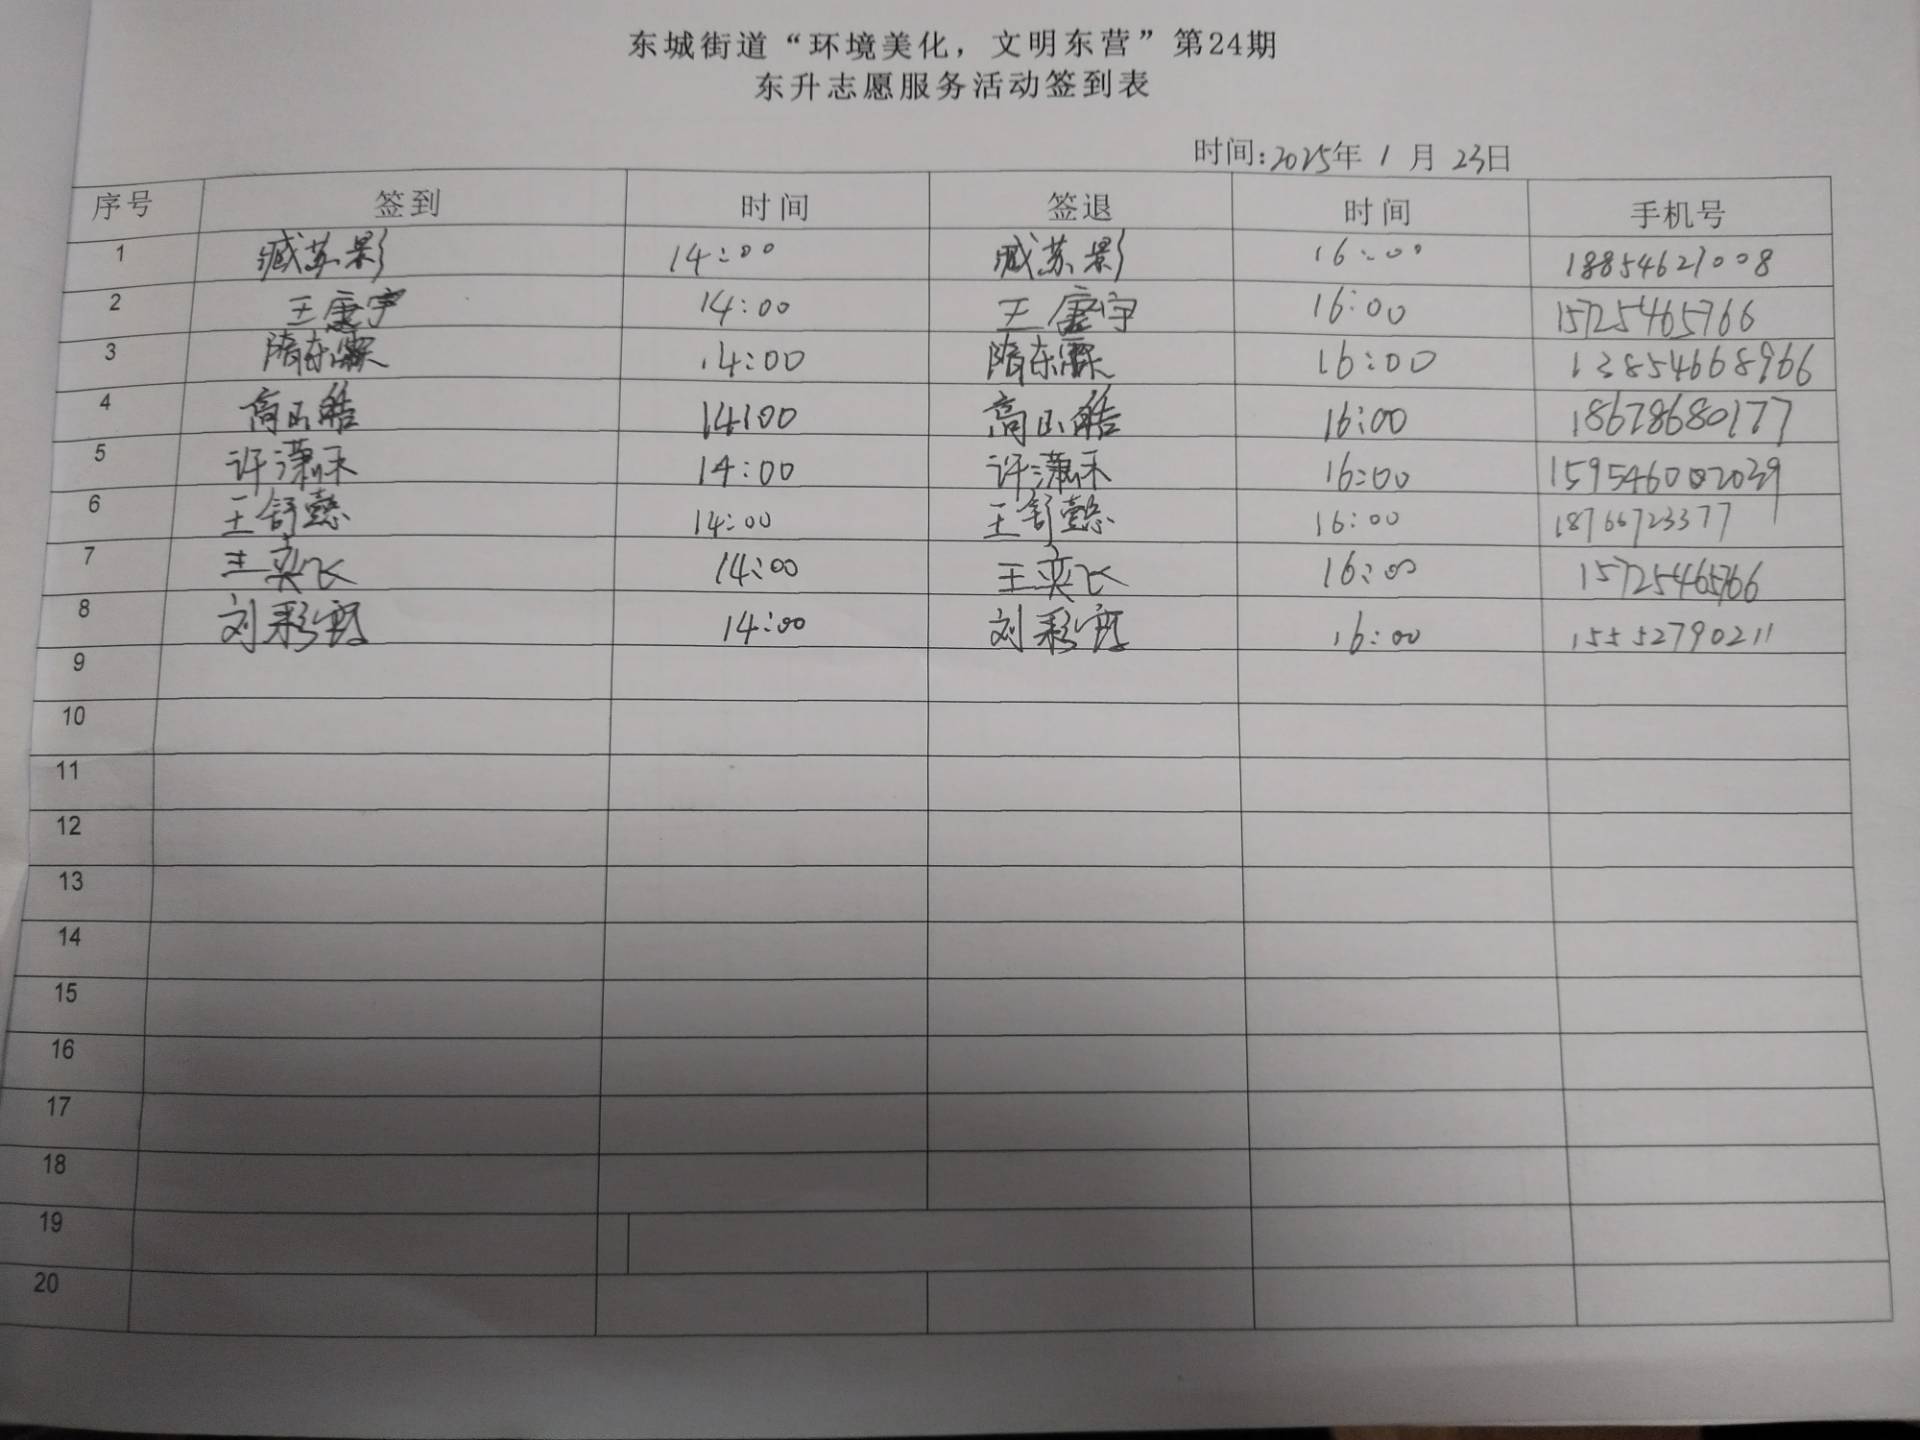 东城街道“环境美化，文明东营”第24期
东升志愿服务活动签到表
时间:2025年 1 月 23日
序号 签到 时间 签退 时间 手机号
1 臧苏影 14:00 臧苏影 16:00 18854621008
2 王唐宇 14:00 王唐宇 16:00 15725465766
3 隋东霖 14:00 隋东霖 16:00 13854668966
4 高正皓 14:00 高正皓 16:00 18678680177
5 许潇禾 14:00 许潇禾 16:00
6 王舒懿 14:00 王舒懿 16:00 18766723377
7 王奕飞 14:00 王奕飞 16:00 15725465766
8 刘彩 14:00 刘彩 16:00 15552790211
9
10
11
12
13
14
15
16
17
18
19
20